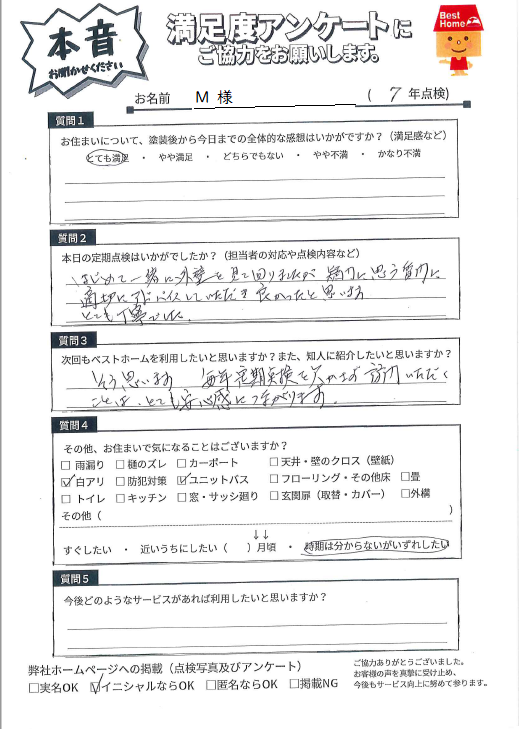 本音
お聞かせください
満足度アンケートに
ご協力をお願いします。
Best
Home
お名前 M 様 ( 7 年点検)
質問1
お住まいについて、塗装後から今日までの全体的な感想はいかがですか？（満足感など）
とても満足 ・ やや満足 ・ どちらでもない ・ やや不満 ・ かなり不満
質問2
本日の定期点検はいかがでしたか？（担当者の対応や点検内容など）
はじめて一緒に外壁を見て回りましたが 疑問に思う質問に
適切にアドバイスしていただき良かったと思います
とても丁寧でした。
質問3
次回もベストホームを利用したいと思いますか？また、知人に紹介したいと思いますか？
そう思います 毎年定期点検を欠かさず訪問いただく
ことは、とても安心感につながります。
質問4
その他、お住まいで気になることはございますか？
□ 雨漏り □ 樋のズレ □ カーポート □ 天井・壁のクロス（壁紙）
☑ 白アリ □ 防犯対策 ☑ ユニットバス □ フローリング・その他床 □ 畳
□ トイレ □ キッチン □ 窓・サッシ廻り □ 玄関扉（取替・カバー） □ 外構
その他（ ）
↓↓
すぐしたい ・ 近いうちにしたい（ ）月頃 ・ 時期は分からないがいずれしたい
質問5
今後どのようなサービスがあれば利用したいと思いますか？
弊社ホームページへの掲載（点検写真及びアンケート）
□実名OK ☑イニシャルならOK □匿名ならOK □掲載NG
ご協力ありがとうございました。
お客様の声を真摯に受け止め、
今後もサービス向上に努めて参ります。